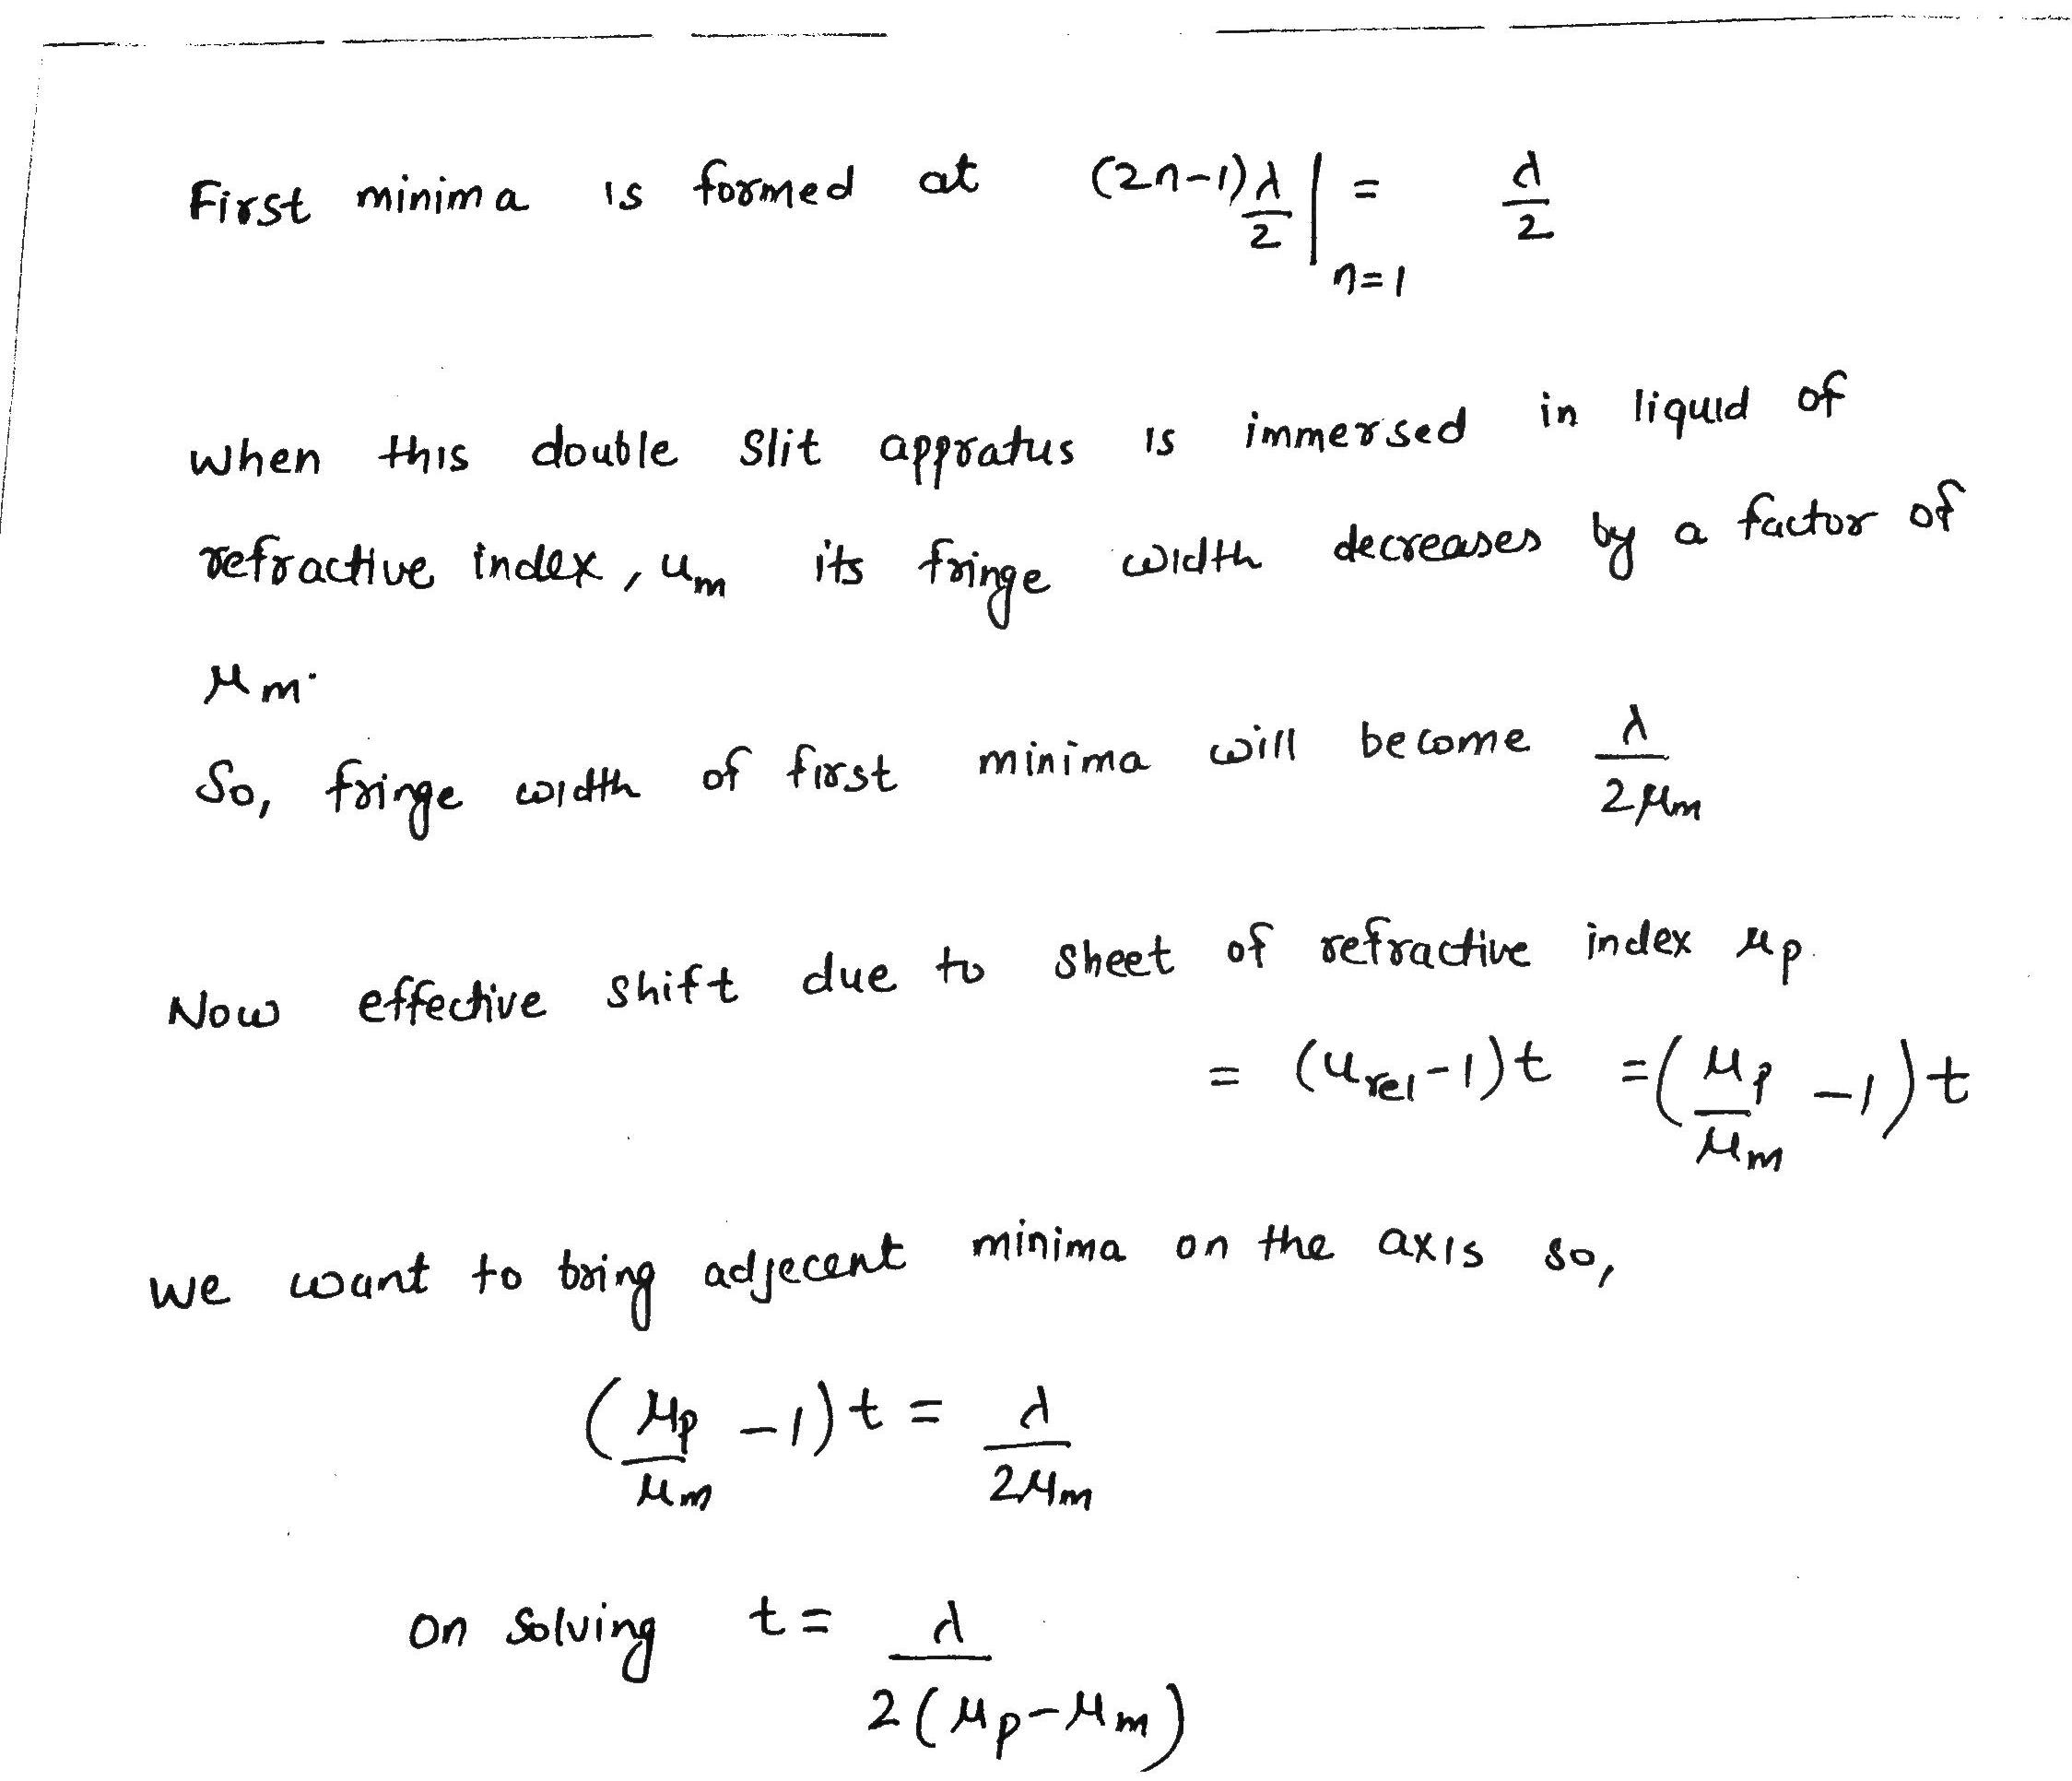 First minima is formed at (2n-1)λ/2 |n=1 = λ/2
when this double slit appratus is immersed in liquid of
refractive index, um its fringe width decreases by a factor of
μm.
So, fringe width of first minima will become λ/2μm
Now effective shift due to sheet of refractive index μp.
= (urel-1)t =(μp/μm -1)t
we want to bring adjecent minima on the axis so,
(μp/μm -1)t = λ/2μm
on solving t= λ/2(μp-μm)